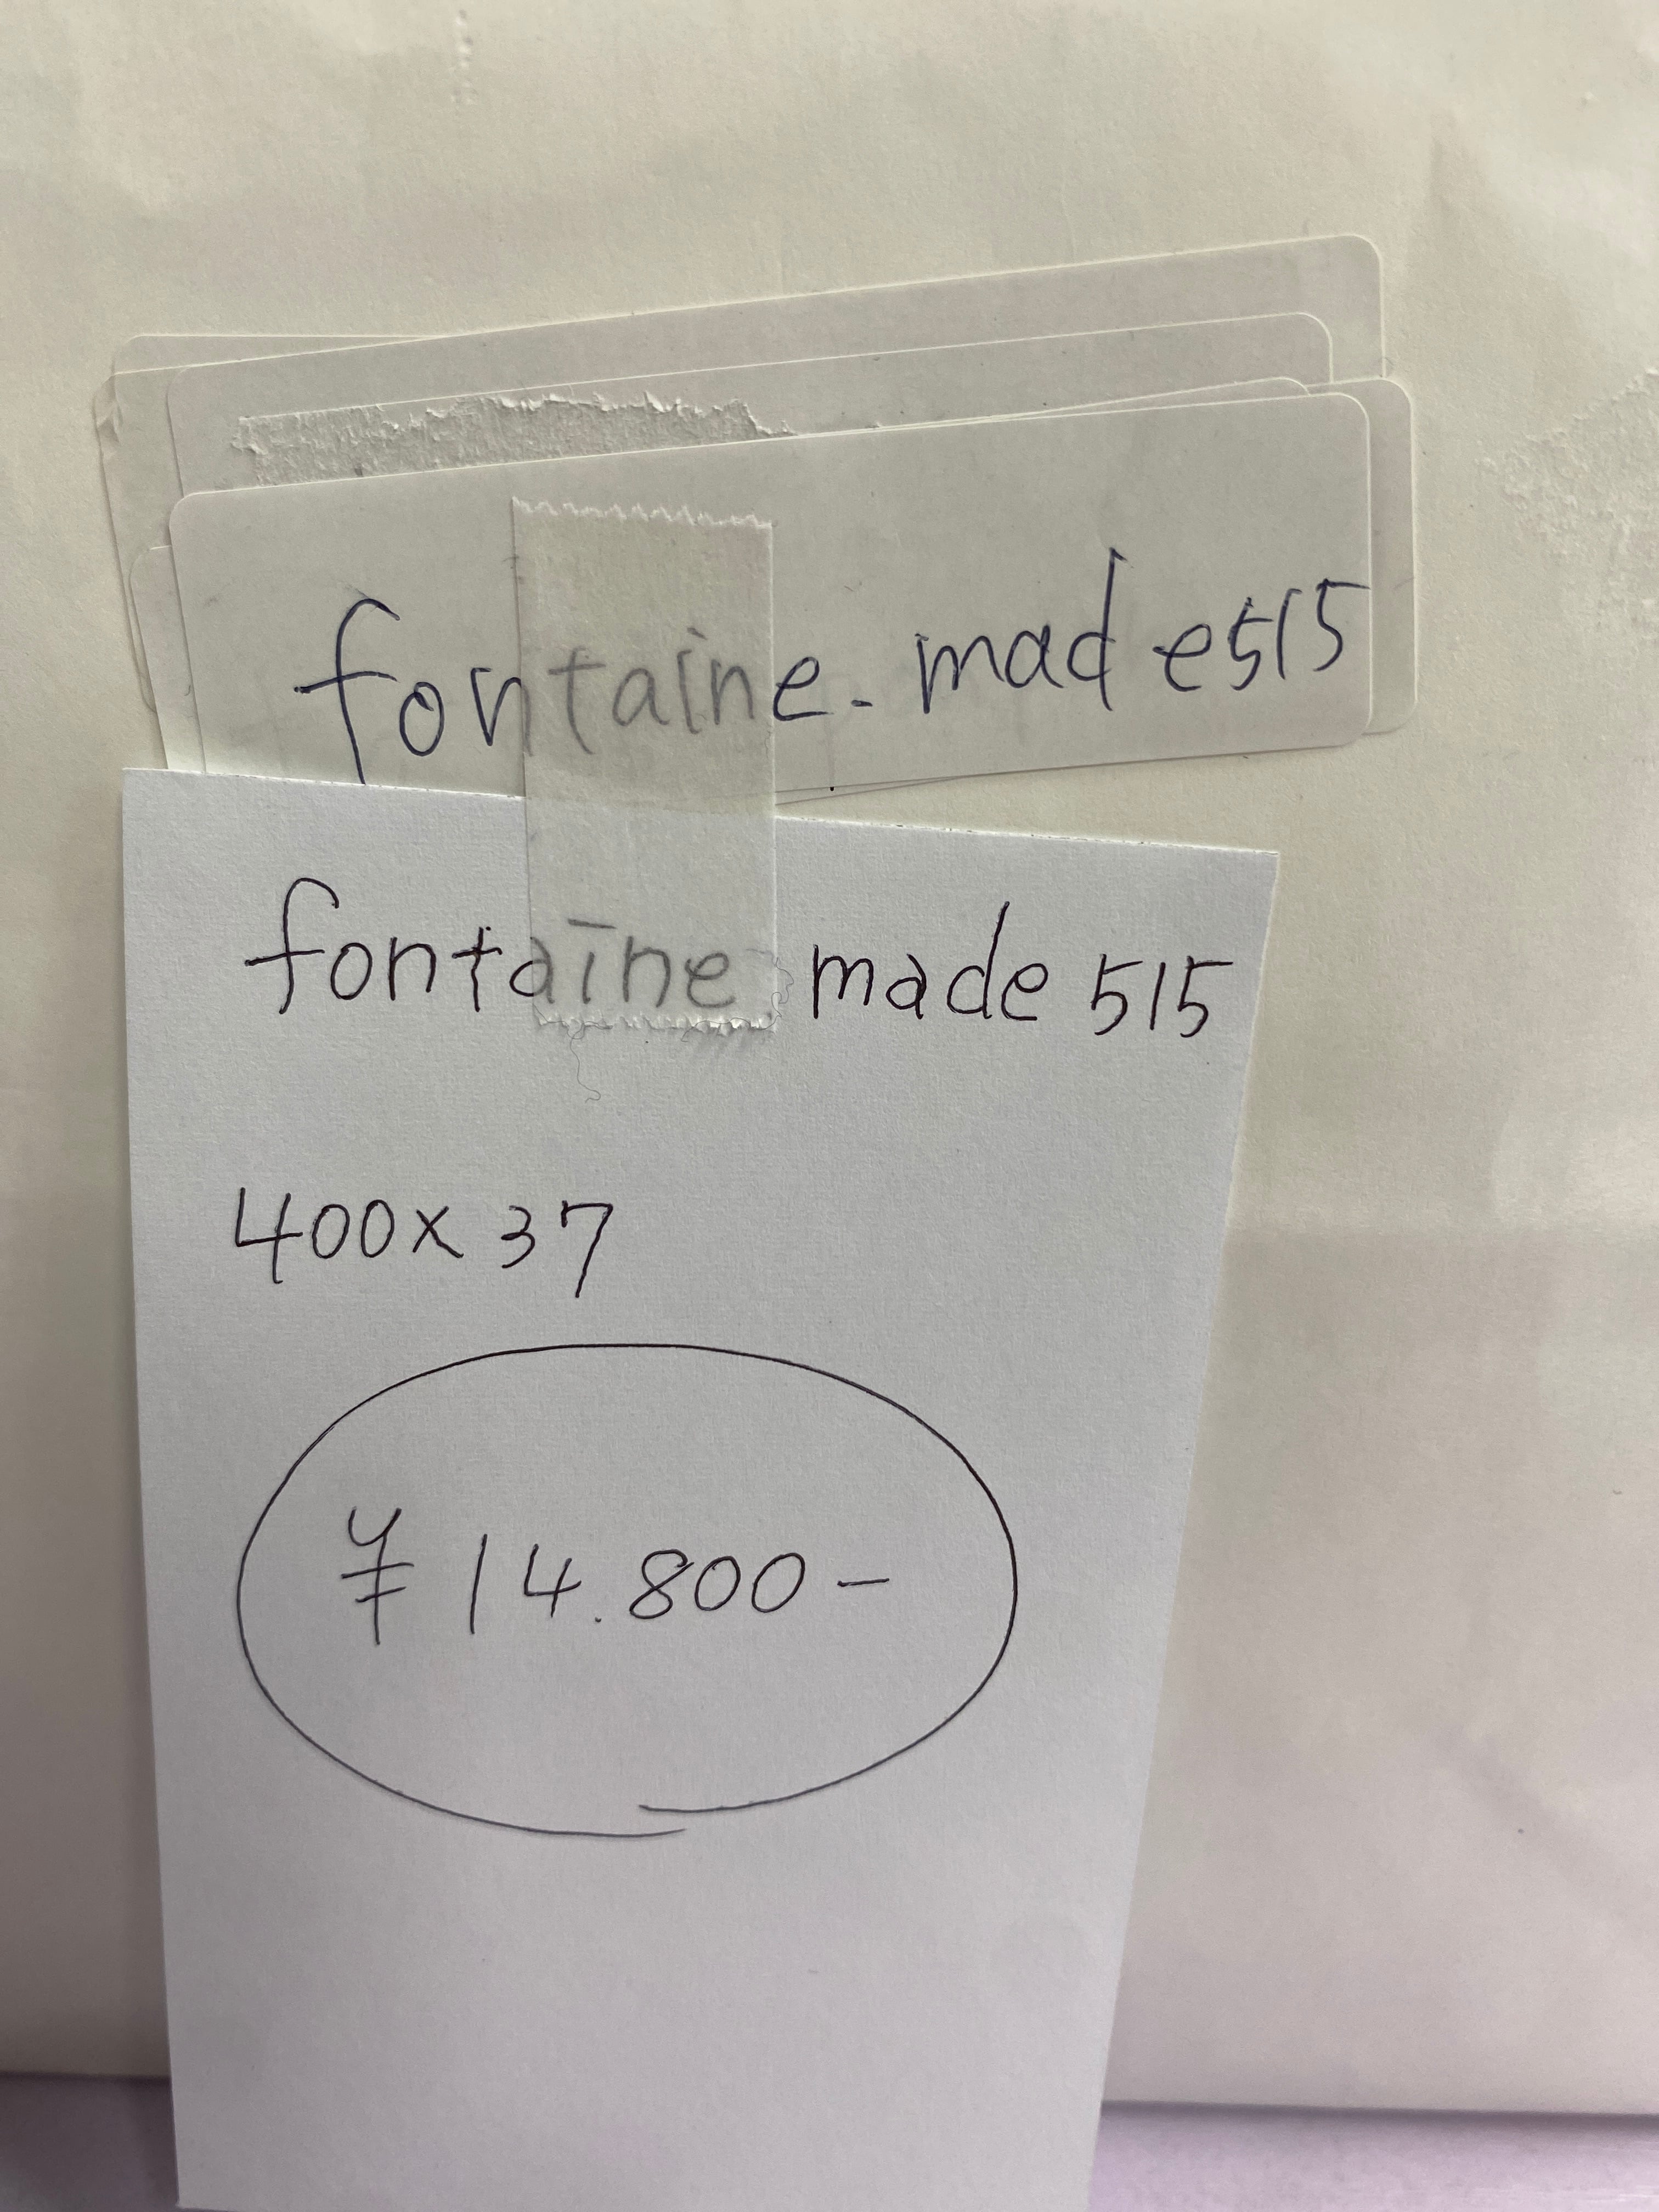 fontaine.made515
fontaine made 515
400×37
¥14.800-